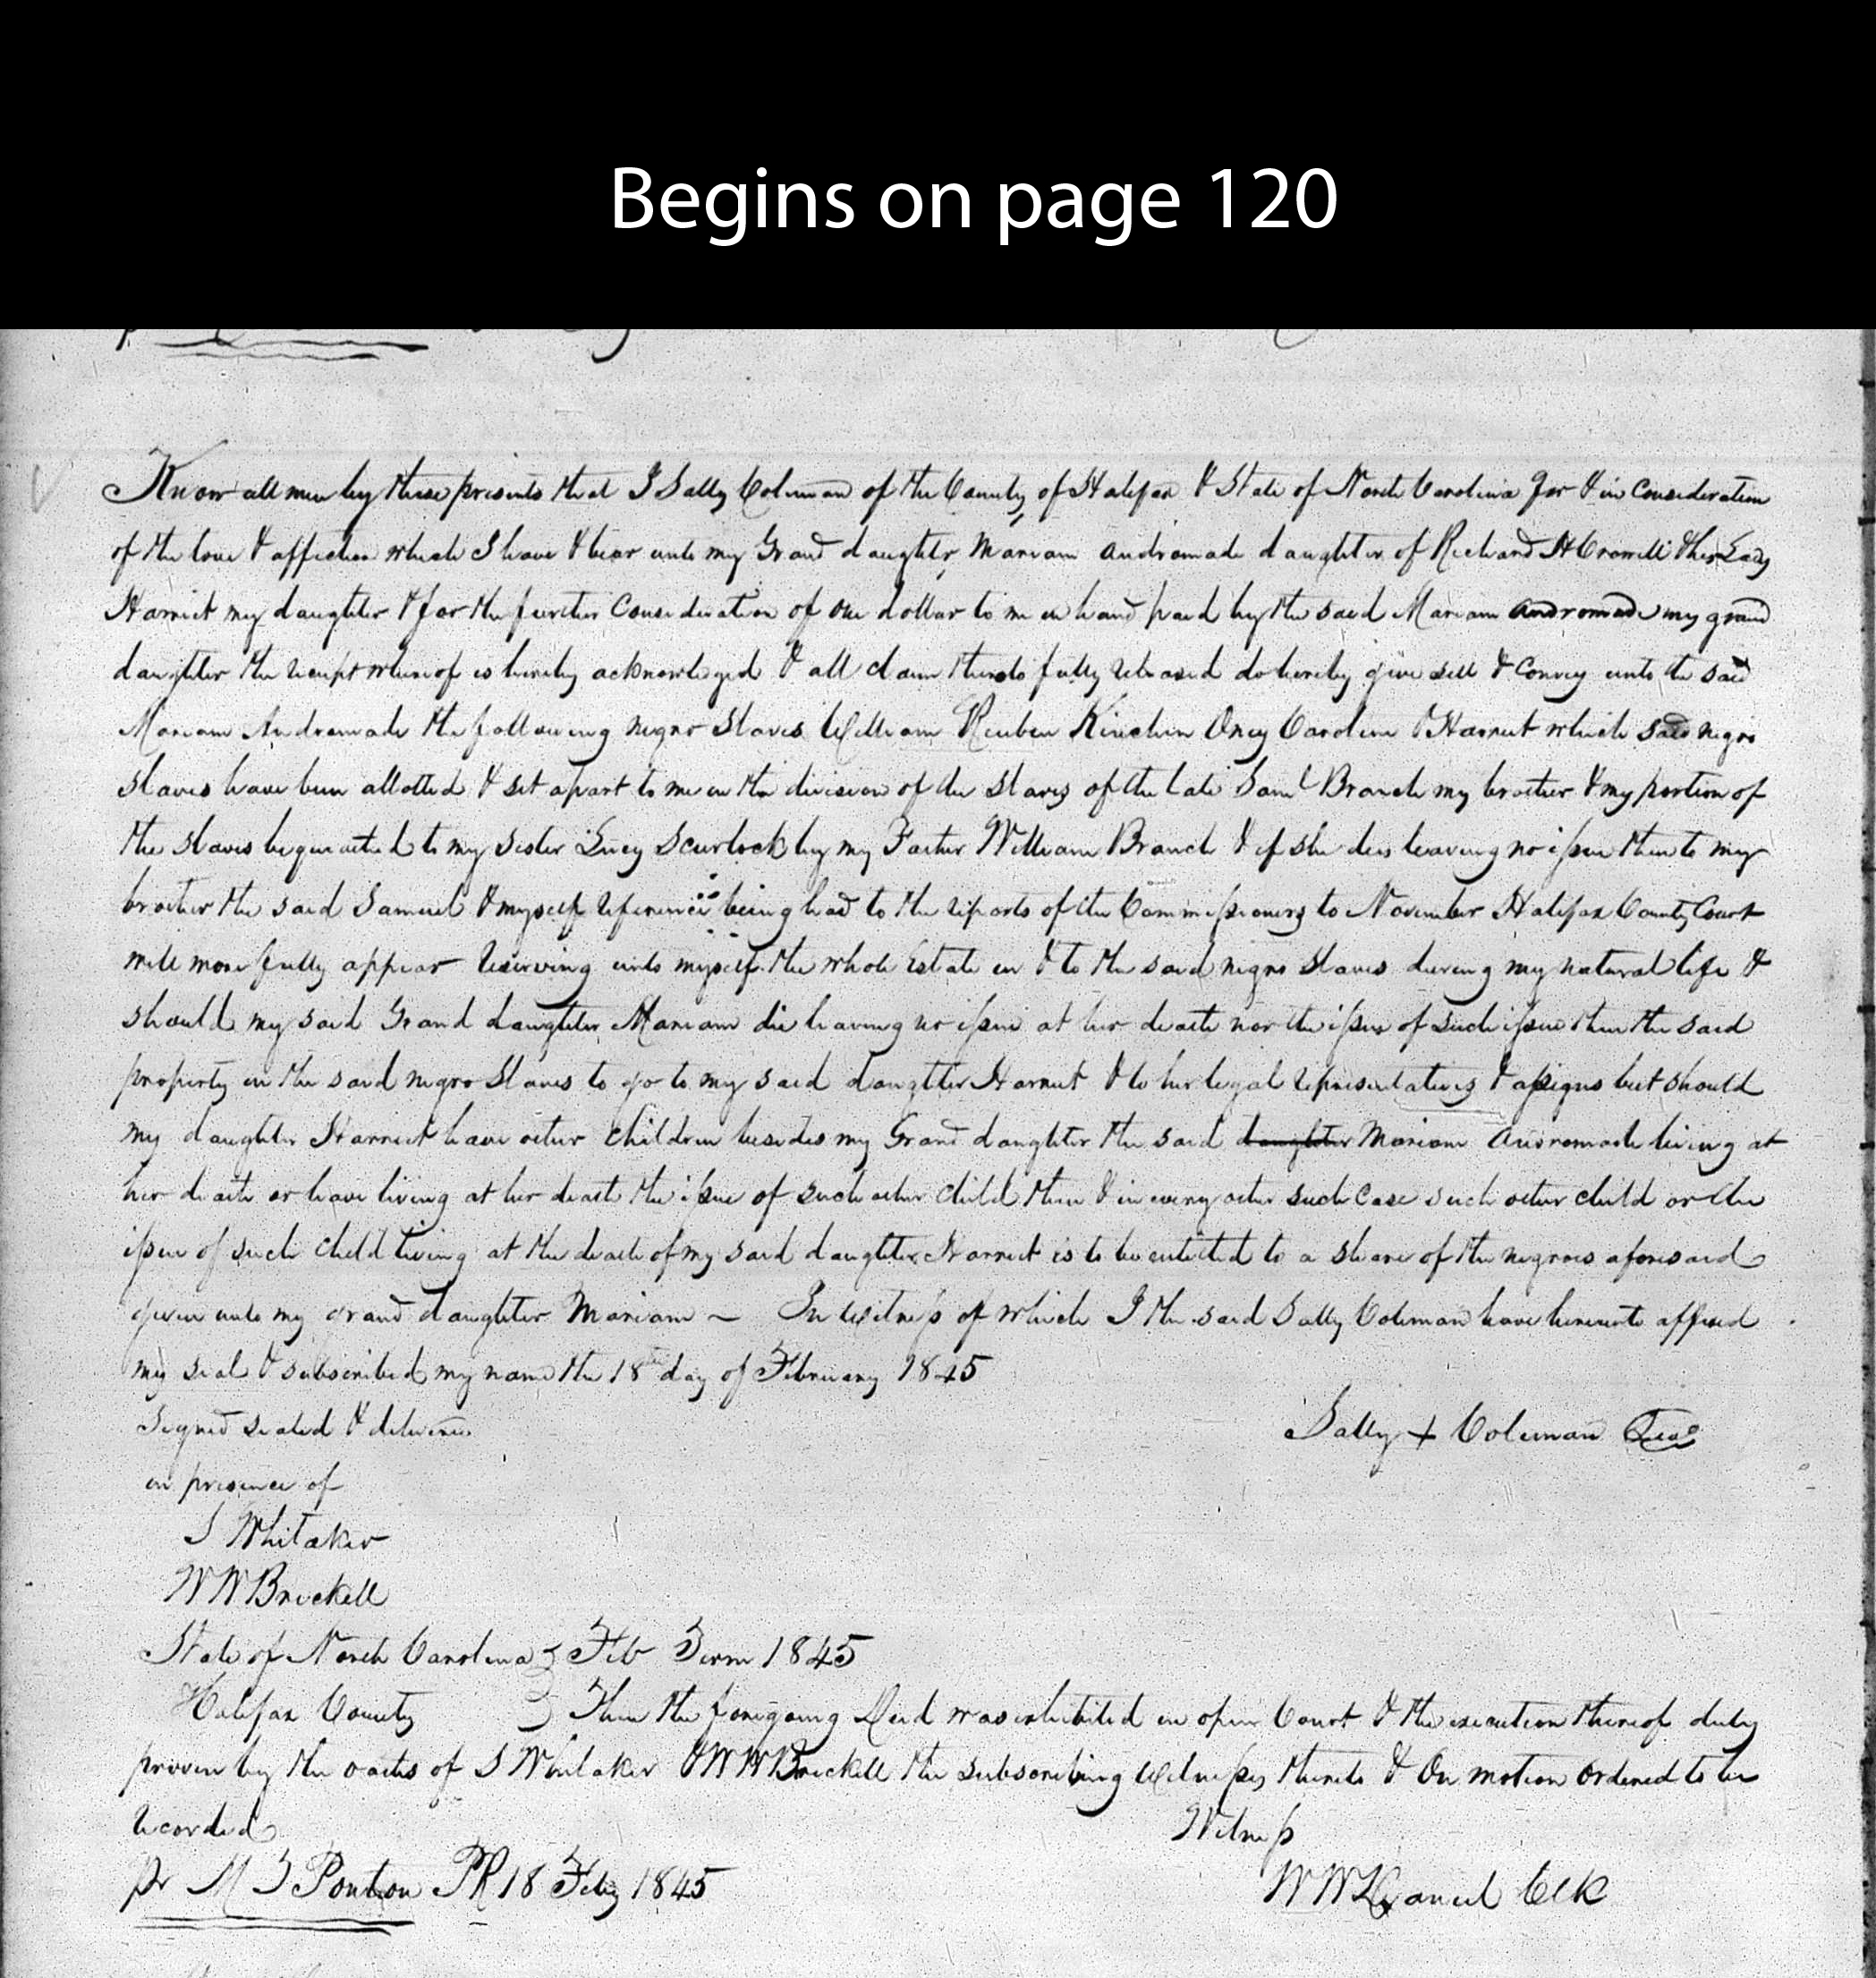 Begins on page 120
Know all men by these presents that I Sally Coleman of the County of Halifax & State of North Carolina for & in Consideration
of the love & affection which I have & bear unto my Grand daughter Mariam Andromade daughter of Richard H Crowell & his Lady
Harriet my daughter & for the further Consideration of one dollar to me in hand paid by the said Mariam Andromade my grand
daughter the receipt whereof is hereby acknowledged & all claim thereto fully released do hereby give sell & Convey unto the said
Mariam Andromade the following negro slaves William Reuben Kinchin Oney Caroline & Harriet which said negro
slaves have been allotted & set apart to me in the division of the slaves of the late Saml Branch my brother & my portion of
the slaves bequeathed to my sister Lucy Scurlock by my Father William Branch & if she dies leaving no issue then to my
brother the said Samuel & myself reference being had to the reports of the Commissioners to November Halifax County Court
will more fully appear reserving unto myself the whole Estate in & to the said negro slaves during my natural life &
should my said Grand daughter Mariam die leaving no issue at her death nor the issue of such issue then the said
property in the said negro slaves to go to my said daughter Harriet & to her legal representatives & assigns but should
my daughter Harriet have other children besides my Grand daughter the said daughter Mariam Andromade living at
her death or have living at her death the issue of such other child then & in every other such case such other child or the
issue of such child living at the death of my said daughter Harriet is to be entitled to a share of the negroes aforesaid
given unto my grand daughter Mariam ~ In witness of which I the said Sally Coleman have hereunto affixed
my seal & subscribed my name the 18th day of February 1845
Signed sealed & delivered
Sally + Coleman Seal
in presence of
S Whitaker
W W Brickell
State of North Carolina } Feb Term 1845
Halifax County } Then the foregoing Deed was exhibited in open Court & the execution thereof duly
proven by the oaths of S Whitaker & W W Brickell the subscribing witnesses thereto & On motion Ordered to be
recorded
Witness
pr M T Ponton PR 18 Feby 1845
W W Daniel Clk